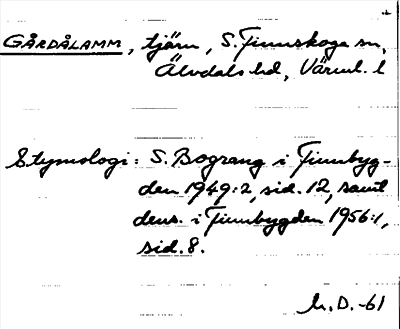 GÅRDÅLAMM, tjärn, S. Finnskoga sn,
Älvdals hd, Värml. l
Etymologi: S. Bograng i Finnbyg-
den 1949:2, sid. 12, samt
dens. i Finnbygden 1956:1,
sid. 8.
h. D. -61